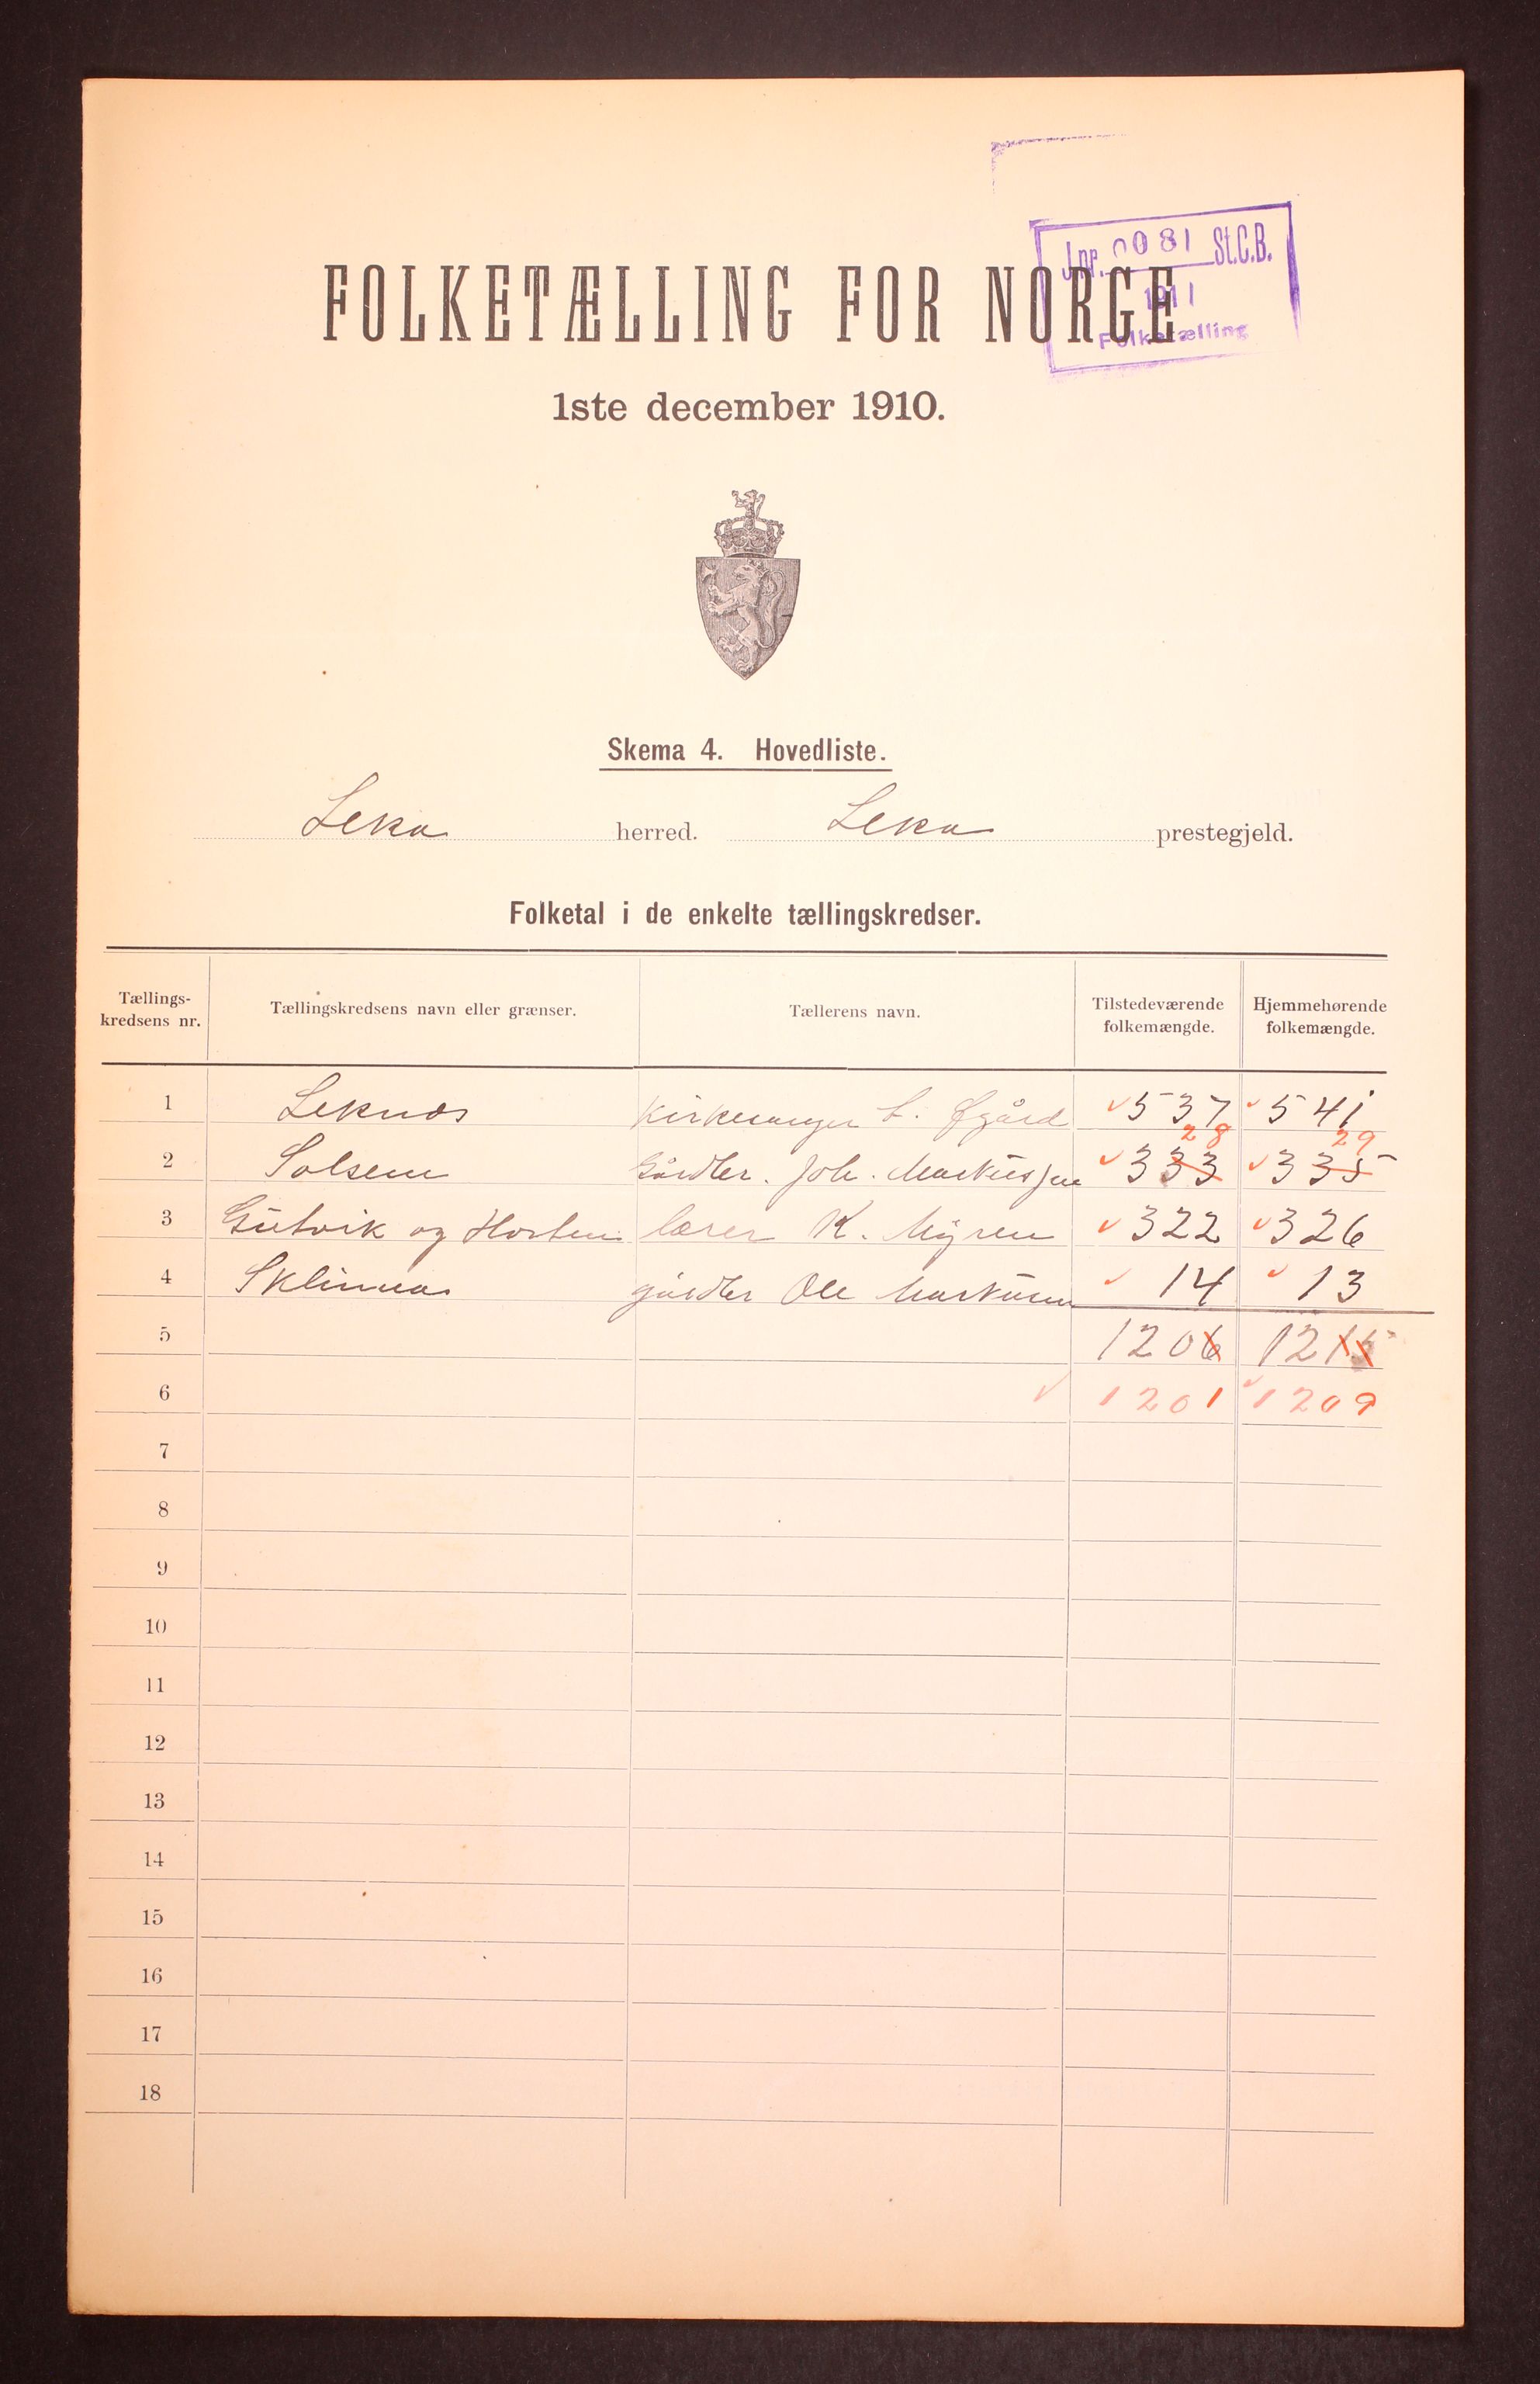 Jnr. 0081 St.C.B.
1911
Folketælling
FOLKETÆLLING FOR NORGE
1ste december 1910.
Skema 4. Hovedliste.
Leka herred. Leka prestegjeld.
Folketal i de enkelte tællingskredser.
Tællings-kredsens nr. Tællingskredsens navn eller grænser. Tællerens navn. Tilstedeværende folkemængde. Hjemmehørende folkemængde.
1 Leknes kirkesanger L. Øgård 537 541
28 29
2 Solsem Gårdbr. Joh. Markussen 333 335
3 Gutvik og Horten lærer K. Myren 322 326
4 Sklinna gårdbr Ole Markusen 14 13
5 1206 1215
6 1201 1209
7
8
9
10
11
12
13
14
15
16
17
18